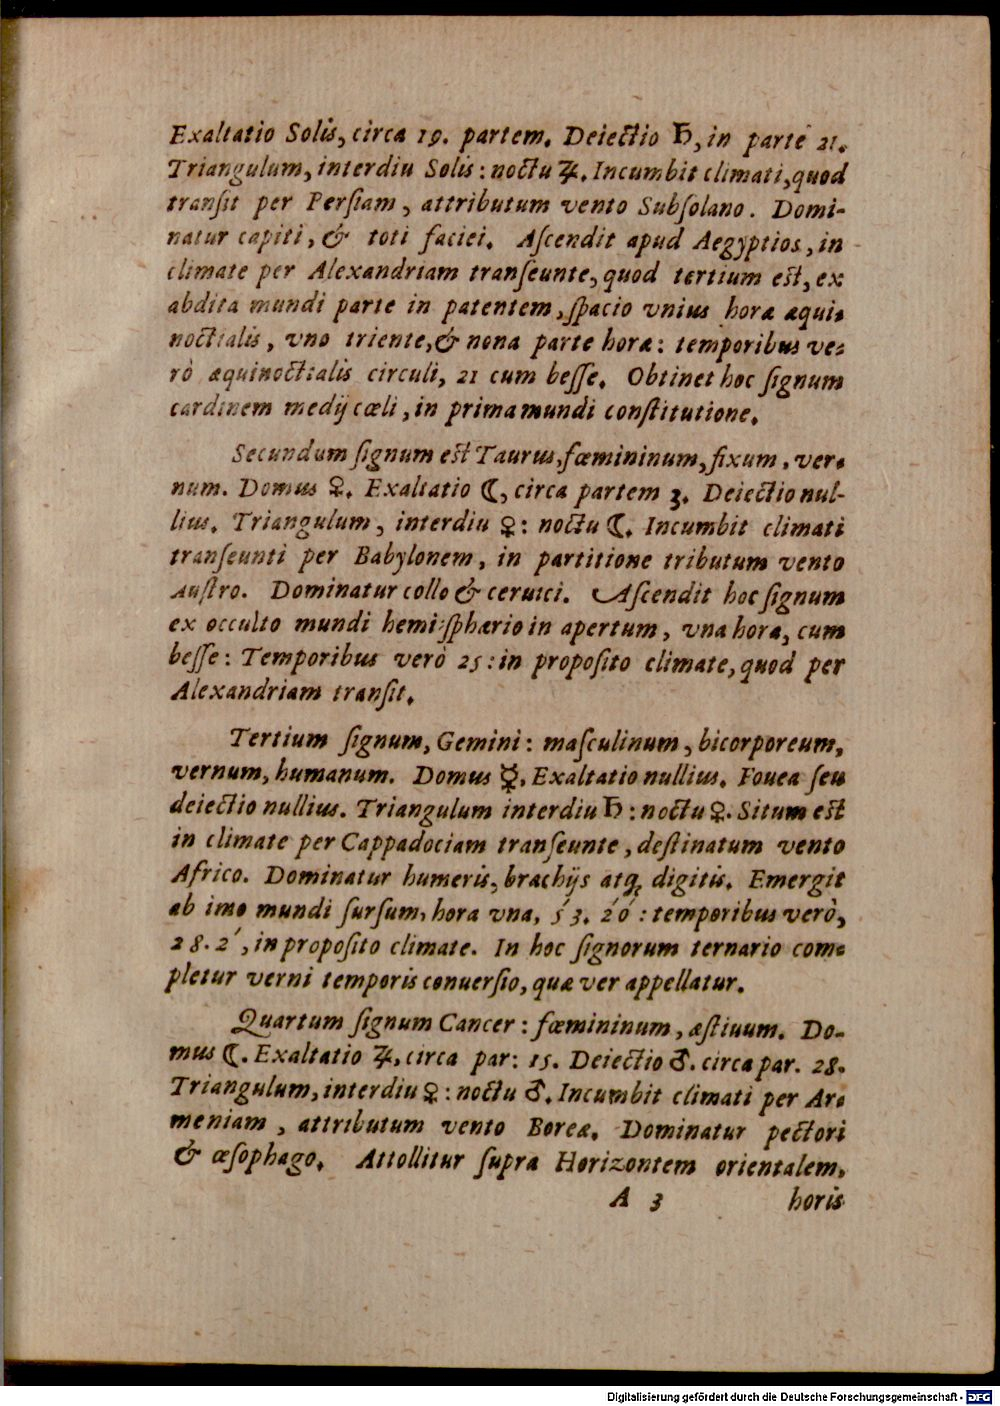 Exaltatio Solis, circa 19. partem. Deiectio ♄, in parte 21.
Triangulum, interdiu Solis: noctu ♃. Incumbit climati, quod
tranſit per Perſiam, attributum vento Subſolano. Domi-
natur capiti, & toti faciei. Aſcendit apud Aegyptios, in
climate per Alexandriam tranſeunte, quod tertium eſt, ex
abdita mundi parte in patentem, ſpacio vnius horæ æqui-
noctialis, vno triente, & nona parte horæ: temporibus ve-
rò æquinoctialis circuli, 21 cum beſſe. Obtinet hoc ſignum
cardinem medij cœli, in prima mundi conſtitutione.
Secundum ſignum eſt Taurus, fœmininum, fixum, ver-
num. Domus ♀. Exaltatio ☾, circa partem 3. Deiectio nul-
lius. Triangulum, interdiu ♀: noctu ☾. Incumbit climati
tranſeunti per Babylonem, in partitione tributum vento
Auſtro. Dominatur collo & ceruici. Aſcendit hoc ſignum
ex occulto mundi hemiſphærio in apertum, vna hora, cum
beſſe: Temporibus verò 25: in propoſito climate, quod per
Alexandriam tranſit.
Tertium ſignum, Gemini: maſculinum, bicorporeum,
vernum, humanum. Domus ☿. Exaltatio nullius. Fouea ſeu
deiectio nullius. Triangulum interdiu ♄: noctu ♀. Situm eſt
in climate per Cappadociam tranſeunte, deſtinatum vento
Africo. Dominatur humeris, brachijs atq; digitis. Emergit
ab imo mundi ſurſum, hora vna, 5́3. 2́0́: temporibus verò,
28. 2́, in propoſito climate. In hoc ſignorum ternario com-
pletur verni temporis conuerſio, quæ ver appellatur.
Quartum ſignum Cancer: fœmininum, æſtiuum. Do-
mus ☾. Exaltatio ♃, circa par: 15. Deiectio ♂. circa par. 28.
Triangulum, interdiu ♀: noctu ♂. Incumbit climati per Ar-
meniam, attributum vento Boreæ. Dominatur pectori
& œſophago. Attollitur ſupra Horizontem orientalem,
A 3 horis
Digitalisierung gefördert durch die Deutsche Forschungsgemeinschaft - DFG